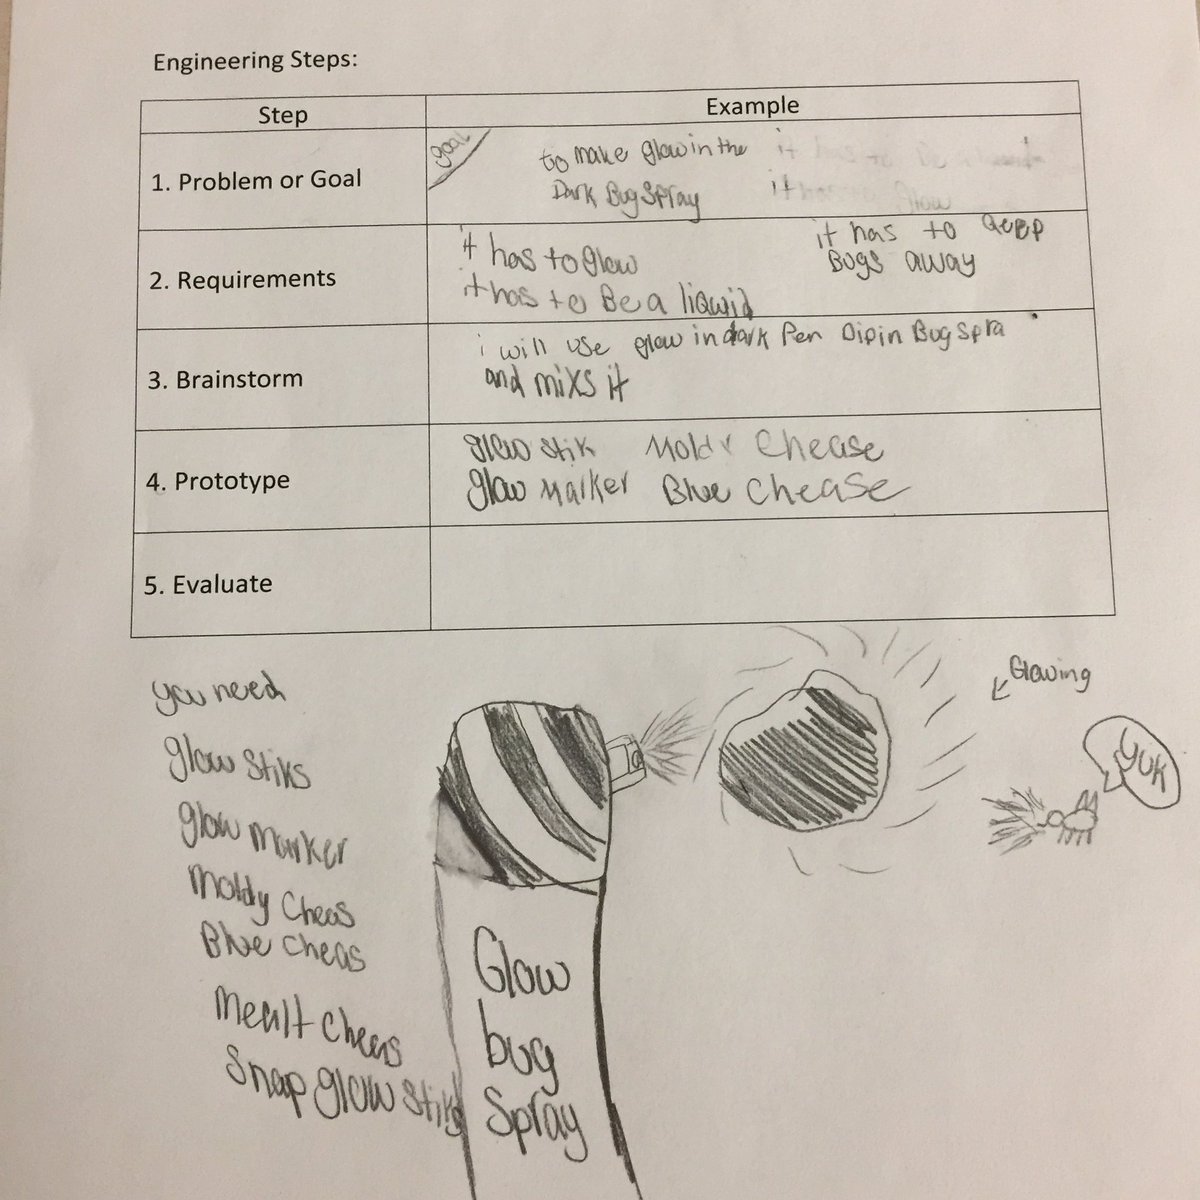 Engineering Steps:
Step
Example
1. Problem or Goal
goal
to make glow in the
Dark Bug Spray
it has to Be a
it has to glow
2. Requirements
it has to glow
it has to Be a liquid
it has to qeep
Bugs away
3. Brainstorm
i will use glow in dark Pen Dip in Bug spra
and mixs it
4. Prototype
glow stik Moldy Chease
glow Marker Blue Chease
5. Evaluate
you need
glow stiks
glow marker
moldy cheas
Blue cheas
mealt cheas
Snap glow stiks
Glow
bug
Spray
Glowing
YUK